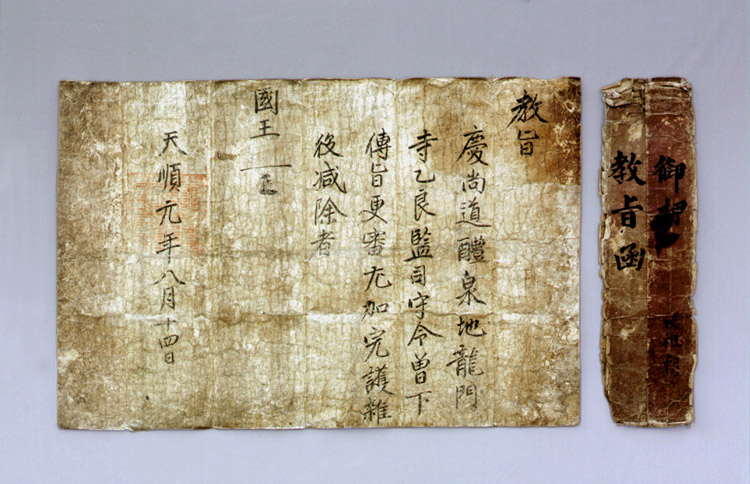 教旨
慶尚道醴泉地龍門
寺乙良監司守令曽下
傳旨更審尤加完護雜
役減除者
國王
天順元年八月十四日
御押
教旨函